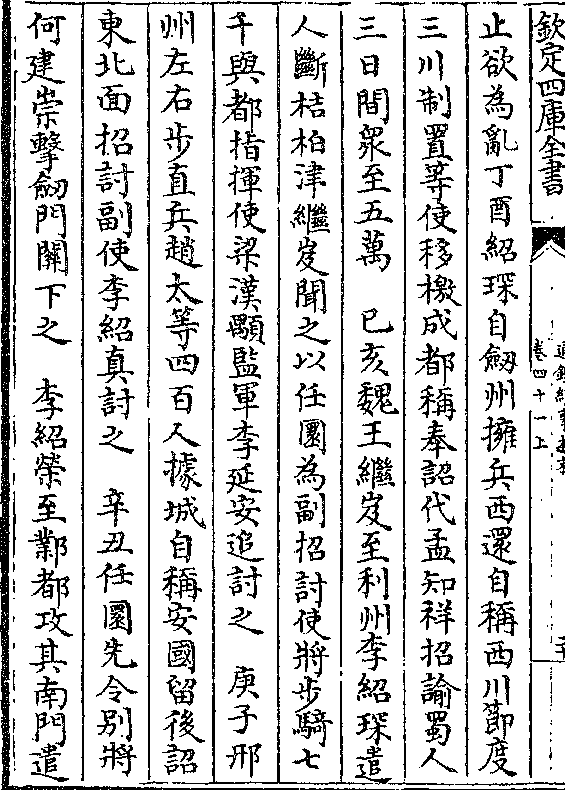 欽定四庫全書
卷四十一上
止欲為亂丁酉紹琛自劒州擁兵西還自稱西川節度
三川制置等使移檄成都稱奉詔代孟知祥招諭蜀人
三日間衆至五萬　已亥魏王繼岌至利州李紹琛遣
人斷桔柏津繼岌聞之以任圜為副招討使將步騎七
千與都指揮使梁漢顒監軍李延安追討之　庚子邢
州左右步直兵趙太等四百人據城自稱安國留後詔
東北面招討副使李紹真討之　辛丑任圜先令别將
何建崇擊劒門關下之　李紹榮至鄴都攻其南門遣